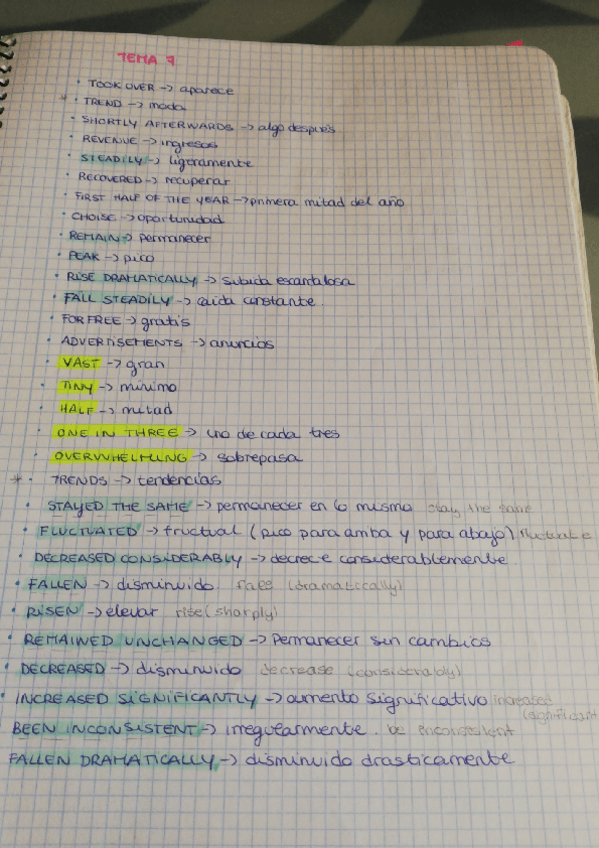 TEMA 7
• TOOK OVER -> aparece
* • TREND -> moda
• SHORTLY AFTERWARDS -> algo después
• REVENUE -> ingresos
• STEADILY -> ligeramente
• RECOVERED -> recuperar
• FIRST HALF OF THE YEAR -> primera mitad del año
• CHOISE -> oportunidad
• REMAIN -> permanecer
• PEAK -> pico
• RISE DRAMATICALLY -> subida escantalosa
• FALL STEADILY -> caida constante.
• FOR FREE -> gratis
• ADVERTISEMENTS -> anuncios
• VAST -> gran
• TINY -> mínimo
• HALF -> mitad
• ONE IN THREE -> uno de cada tres
• OVERWHELMING -> sobrepasa
* • TRENDS -> tendencias
• STAYED THE SAME -> permanecer en lo mismo stay the same
• FLUCTUATED -> fructual (pico para arriba y para abajo) fluctuate
• DECREASED CONSIDERABLY -> decrece considerablemente.
• FALLEN -> disminuido. fall (dramatically)
• RISEN -> elevar rise (sharply)
• REMAINED UNCHANGED -> Permanecer sin cambios
• DECREASED -> disminuido decrease (considerably)
• INCREASED SIGNIFICANTLY -> aumento significativo increased
(significant
BEEN INCONSISTENT -> irregularmente. be inconsistent
FALLEN DRAMATICALLY -> disminuido drasticamente